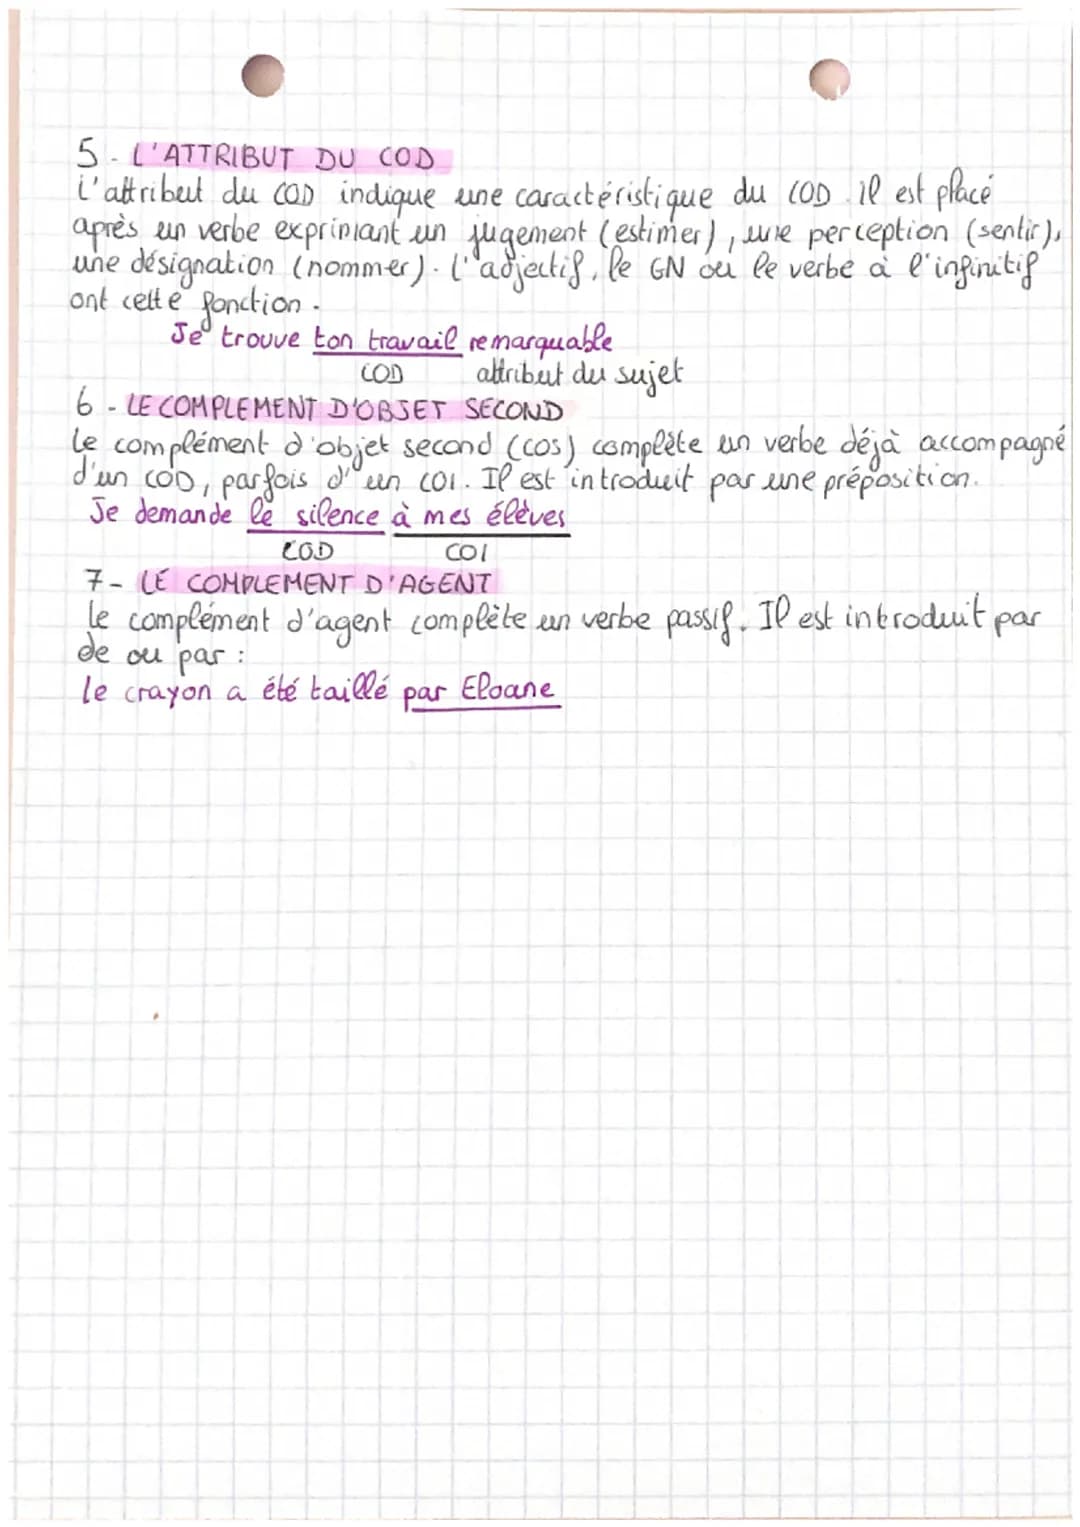 5 - L'ATTRIBUT DU COD
L'attribut du COD indique une caractéristique du COD. Il est placé
après un verbe exprimant un jugement (estimer), une perception (sentir),
une désignation (nommer). L'adjectif, le GN ou le verbe à l'infinitif
ont cette fonction.
Je trouve ton travail remarquable
COD attribut du sujet
6 - LE COMPLEMENT D'OBJET SECOND
Le complément d'objet second (COS) complète un verbe déjà accompagné
d'un COD, parfois d'un COI. Il est introduit par une préposition.
Je demande le silence à mes élèves
COD COI
7 - LE COMPLEMENT D'AGENT
Le complément d'agent complète un verbe passif. Il est introduit par
de ou par :
Le crayon a été taillé par Eloane